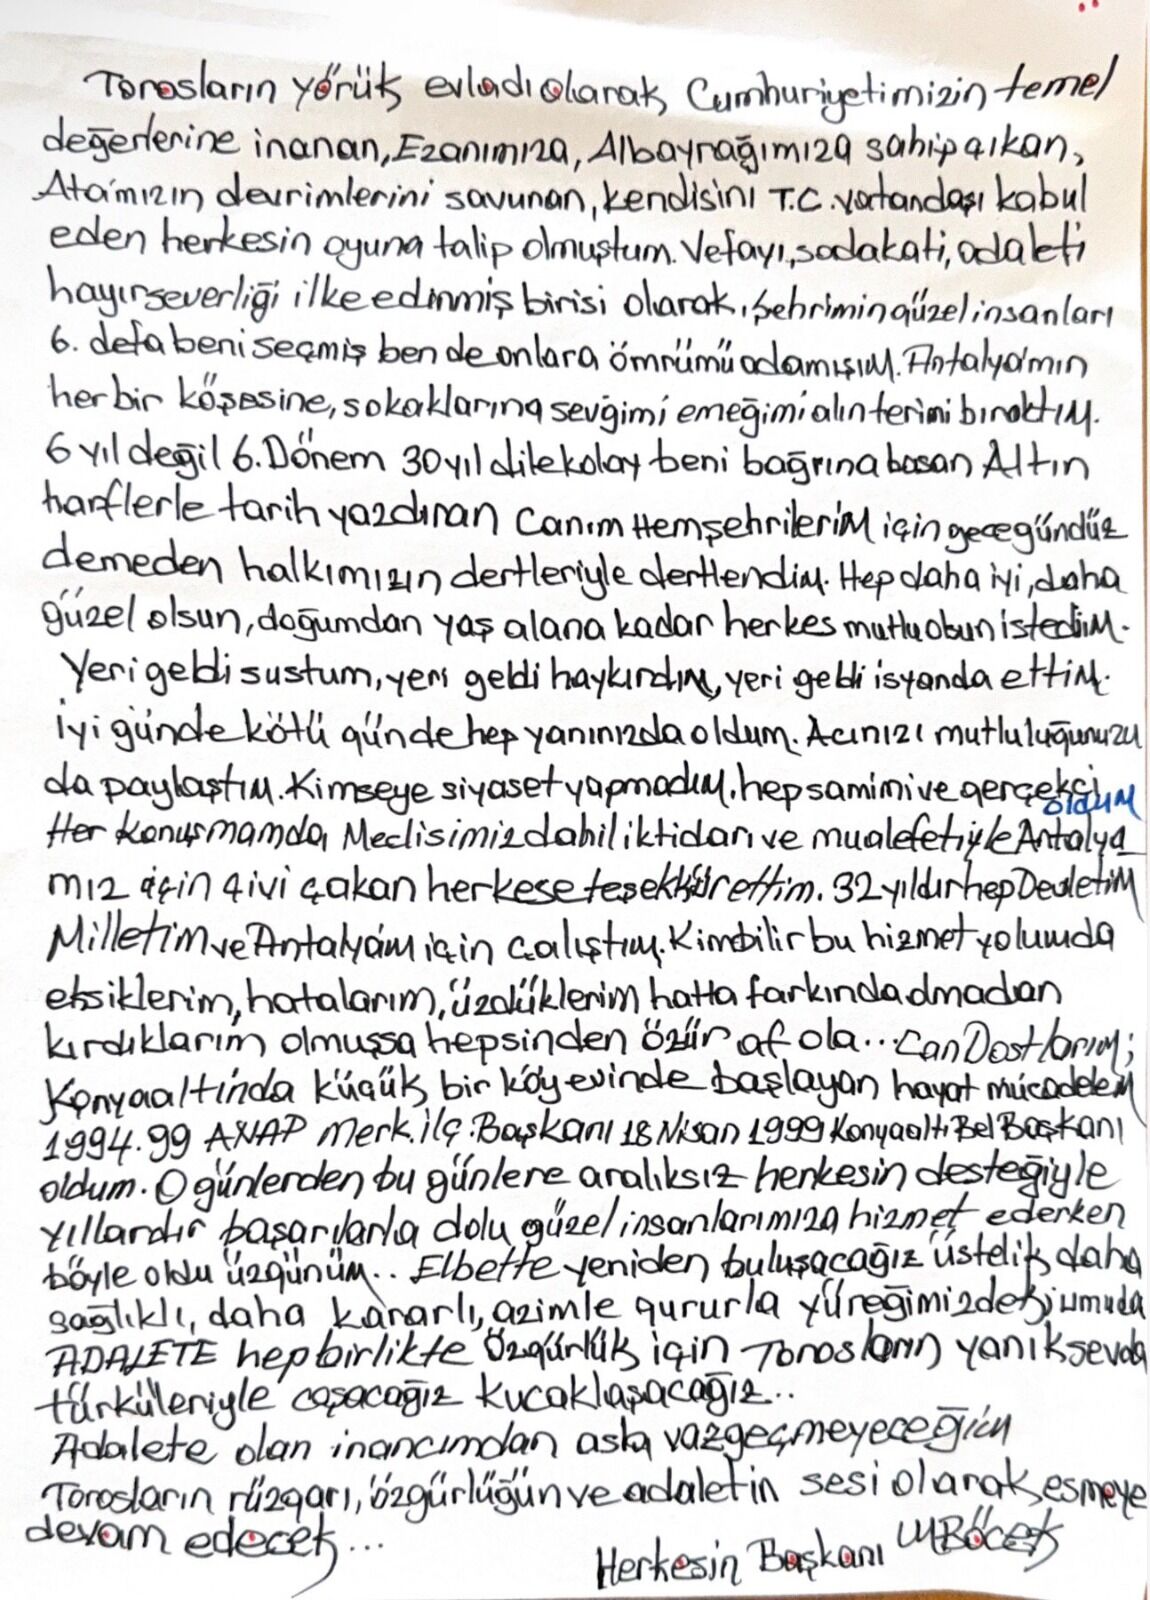 Torosların yörük evladı olarak Cumhuriyetimizin temel
değerlerine inanan, Ezanımıza, Albayrağımıza sahip çıkan,
Ata'mızın devrimlerini savunan, kendisini T.C. vatandaşı kabul
eden herkesin oyuna talip olmuştum. Vefayı, sadakati, adaleti
hayırseverliği ilke edinmiş birisi olarak, şehrimin güzel insanları
6. defa beni seçmiş ben de onlara ömrümü adamışım. Antalya'mın
her bir köşesine, sokaklarına sevgimi emeğimi alın terimi bıraktım.
6 yıl değil 6. Dönem 30 yıl dile kolay beni bağrına basan Altın
harflerle tarih yazdıran Canım Hemşehrilerim için gece gündüz
demeden halkımızın dertleriyle dertlendim. Hep daha iyi, daha
güzel olsun, doğumdan yaş alana kadar herkes mutlu olsun istedim.
Yeri geldi sustum, yeri geldi haykırdım, yeri geldi isyanda ettim.
İyi günde kötü günde hep yanınızda oldum. Acınızı mutluluğunuzu
da paylaştım. Kimseye siyaset yapmadım, hep samimi ve gerçekçi
oldum
Her konuşmamda, Meclisimiz dahil iktidarı ve mualefetiyle Antalya
mız için çivi çakan herkese teşekkür ettim. 32 yıldır hep Devletim
Milletim ve Antalyam için çalıştım. Kimbilir bu hizmet yolunda
eksiklerim, hatalarım, üzdüklerim hatta farkında olmadan
kırdıklarım olmuşsa hepsinden özür af ola... Can Dostlarım;
Konyaaltında küçük bir köy evinde başlayan hayat mücadelem
1994.99 ANAP Merk. ilç. Başkanı 18 Nisan 1999 Konyaaltı Bel Başkanı
oldum. O günlerden bu günlere aralıksız herkesin desteğiyle
yıllardır başarılarla dolu güzel insanlarımıza hizmet ederken
böyle oldu üzgünüm.. Elbette yeniden buluşacağız üstelik daha
sağlıklı, daha kararlı, azimle gururla yüreğimizdeki umuda
ADALETE hep birlikte Özgürlük için Torosların yanık sevda
türküleriyle coşacağız kucaklaşacağız...
Adalete olan inancımdan asla vazgeçmeyeceğim
Torosların rüzgarı, özgürlüğün ve adaletin sesi olarak esmeye
devam edecek...
Herkesin Başkanı MBöcek